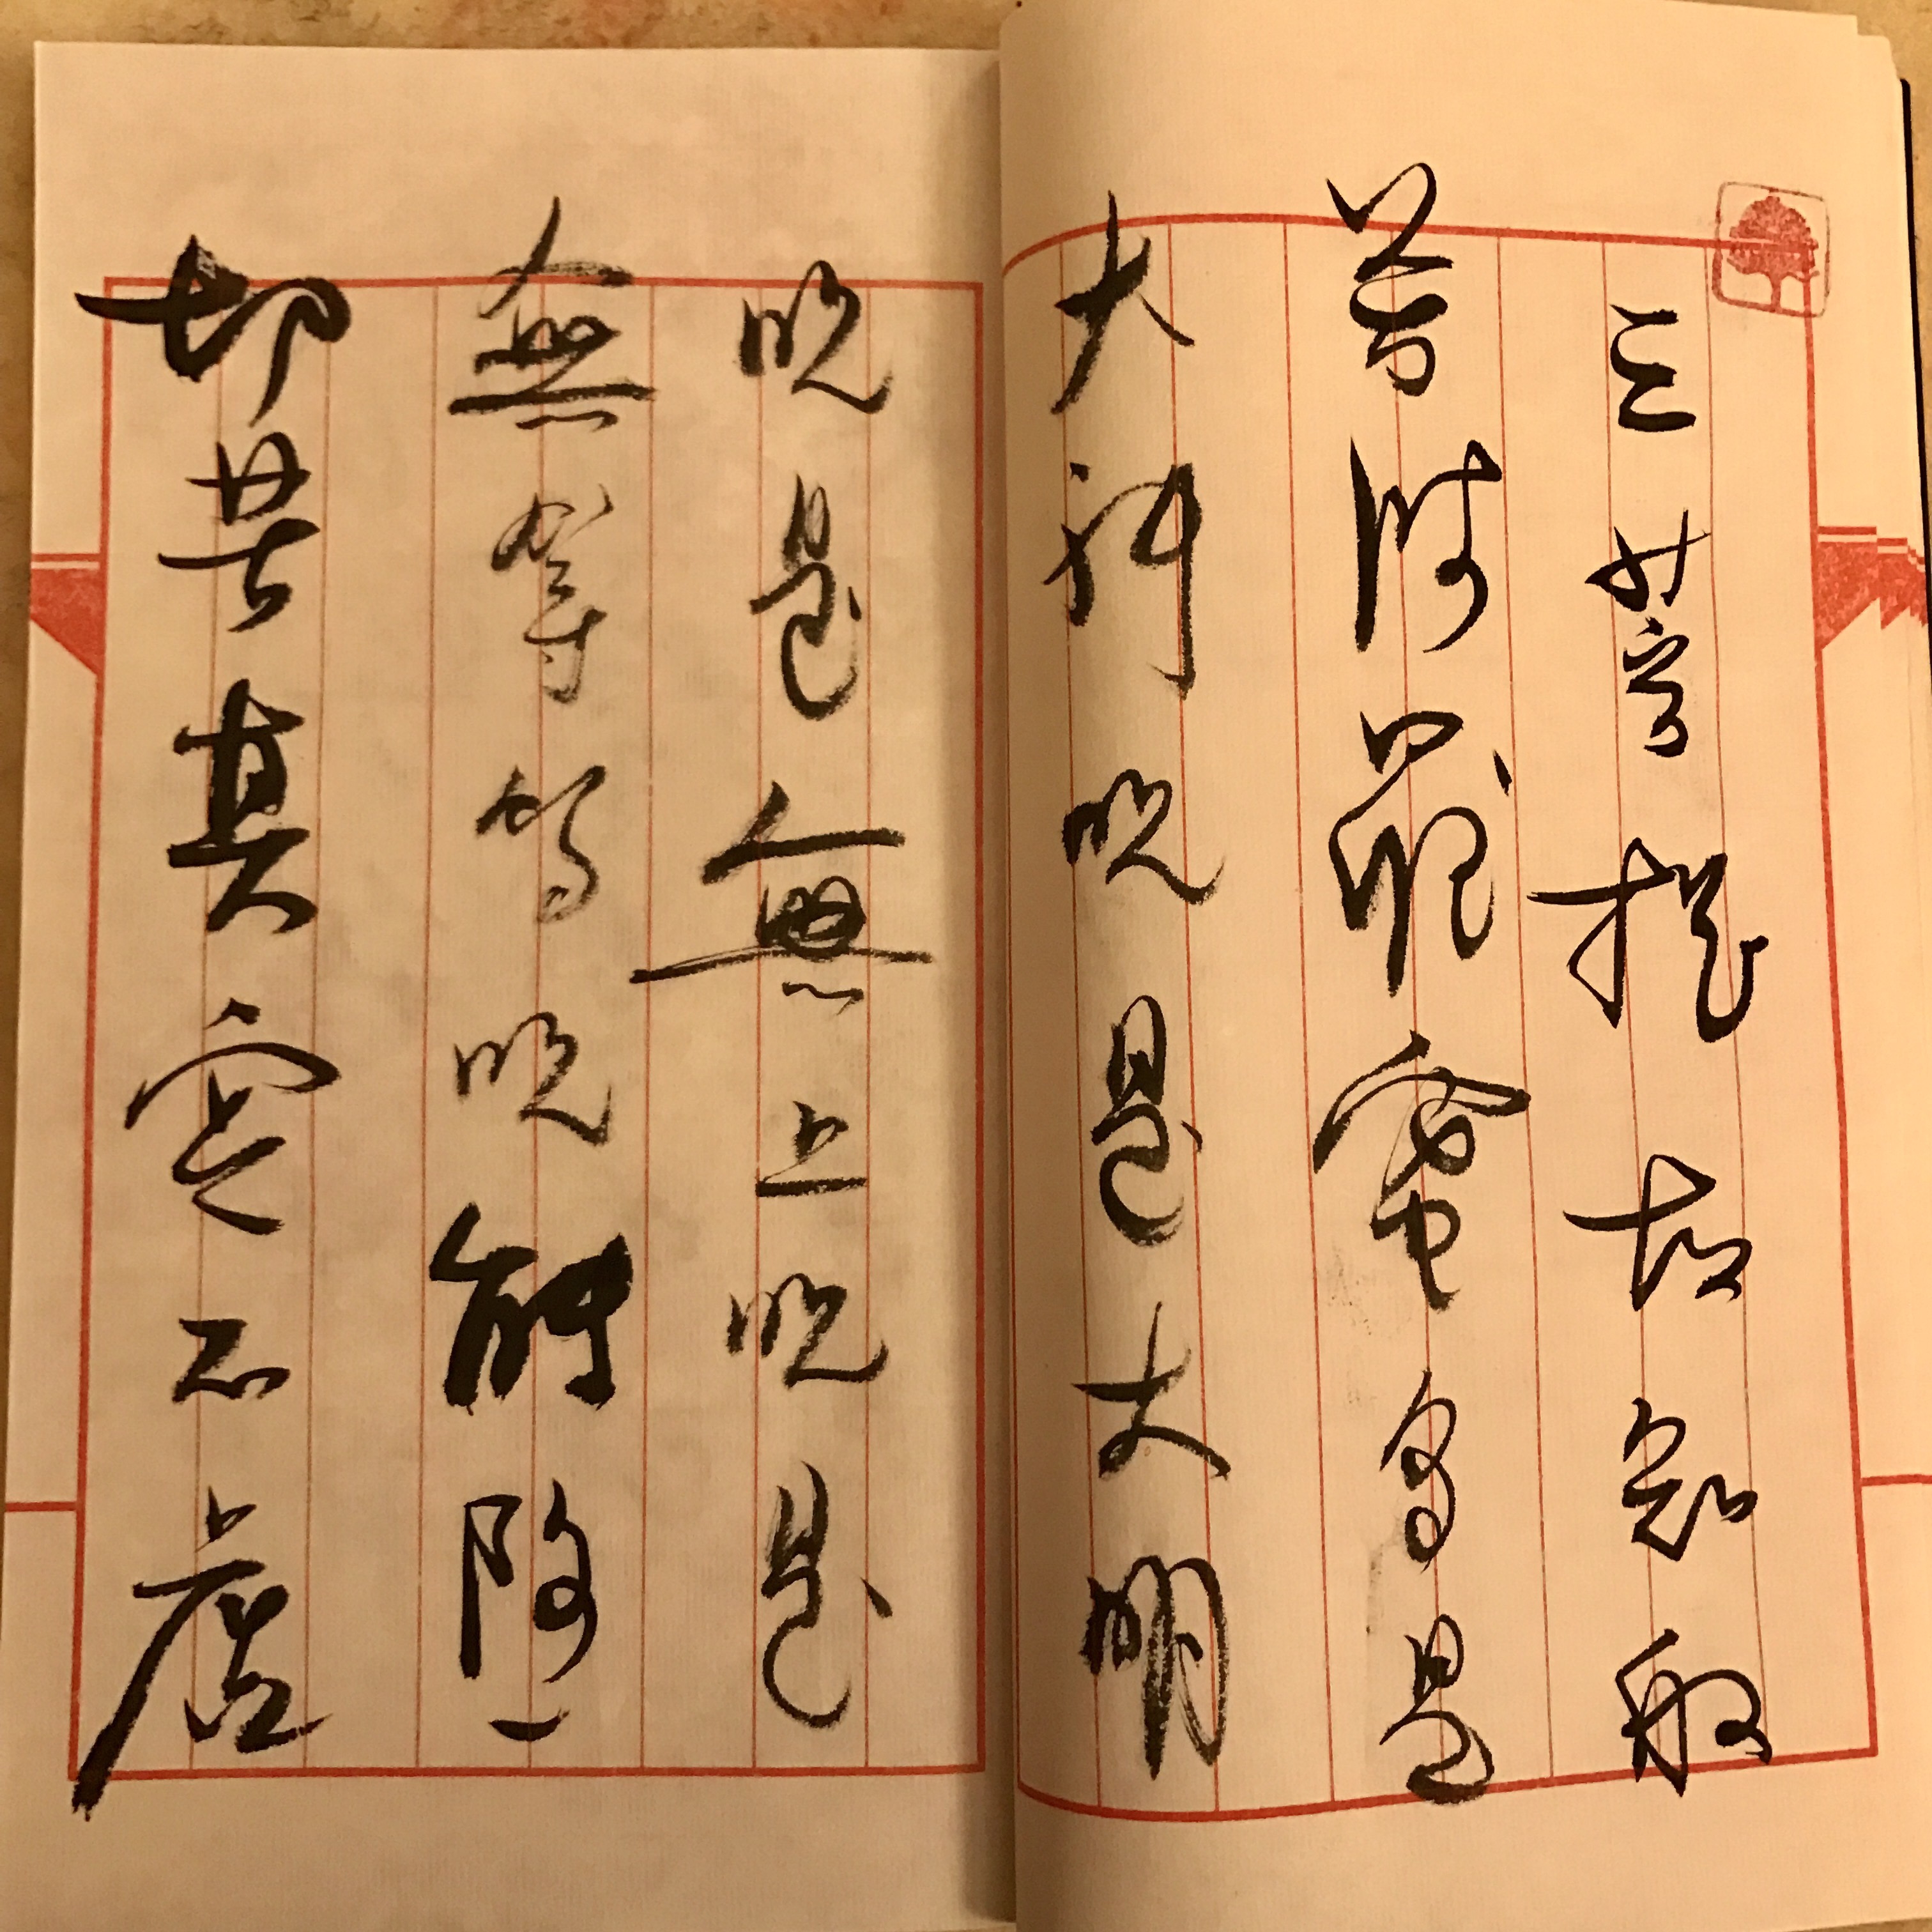 三菩提故知般
若波羅蜜多是
大神呪是大明
呪是無上呪是
無等等呪能除一
切苦真實不虛